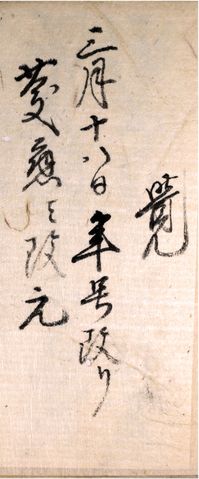 覚
三月十八日年号改り
慶應と改元